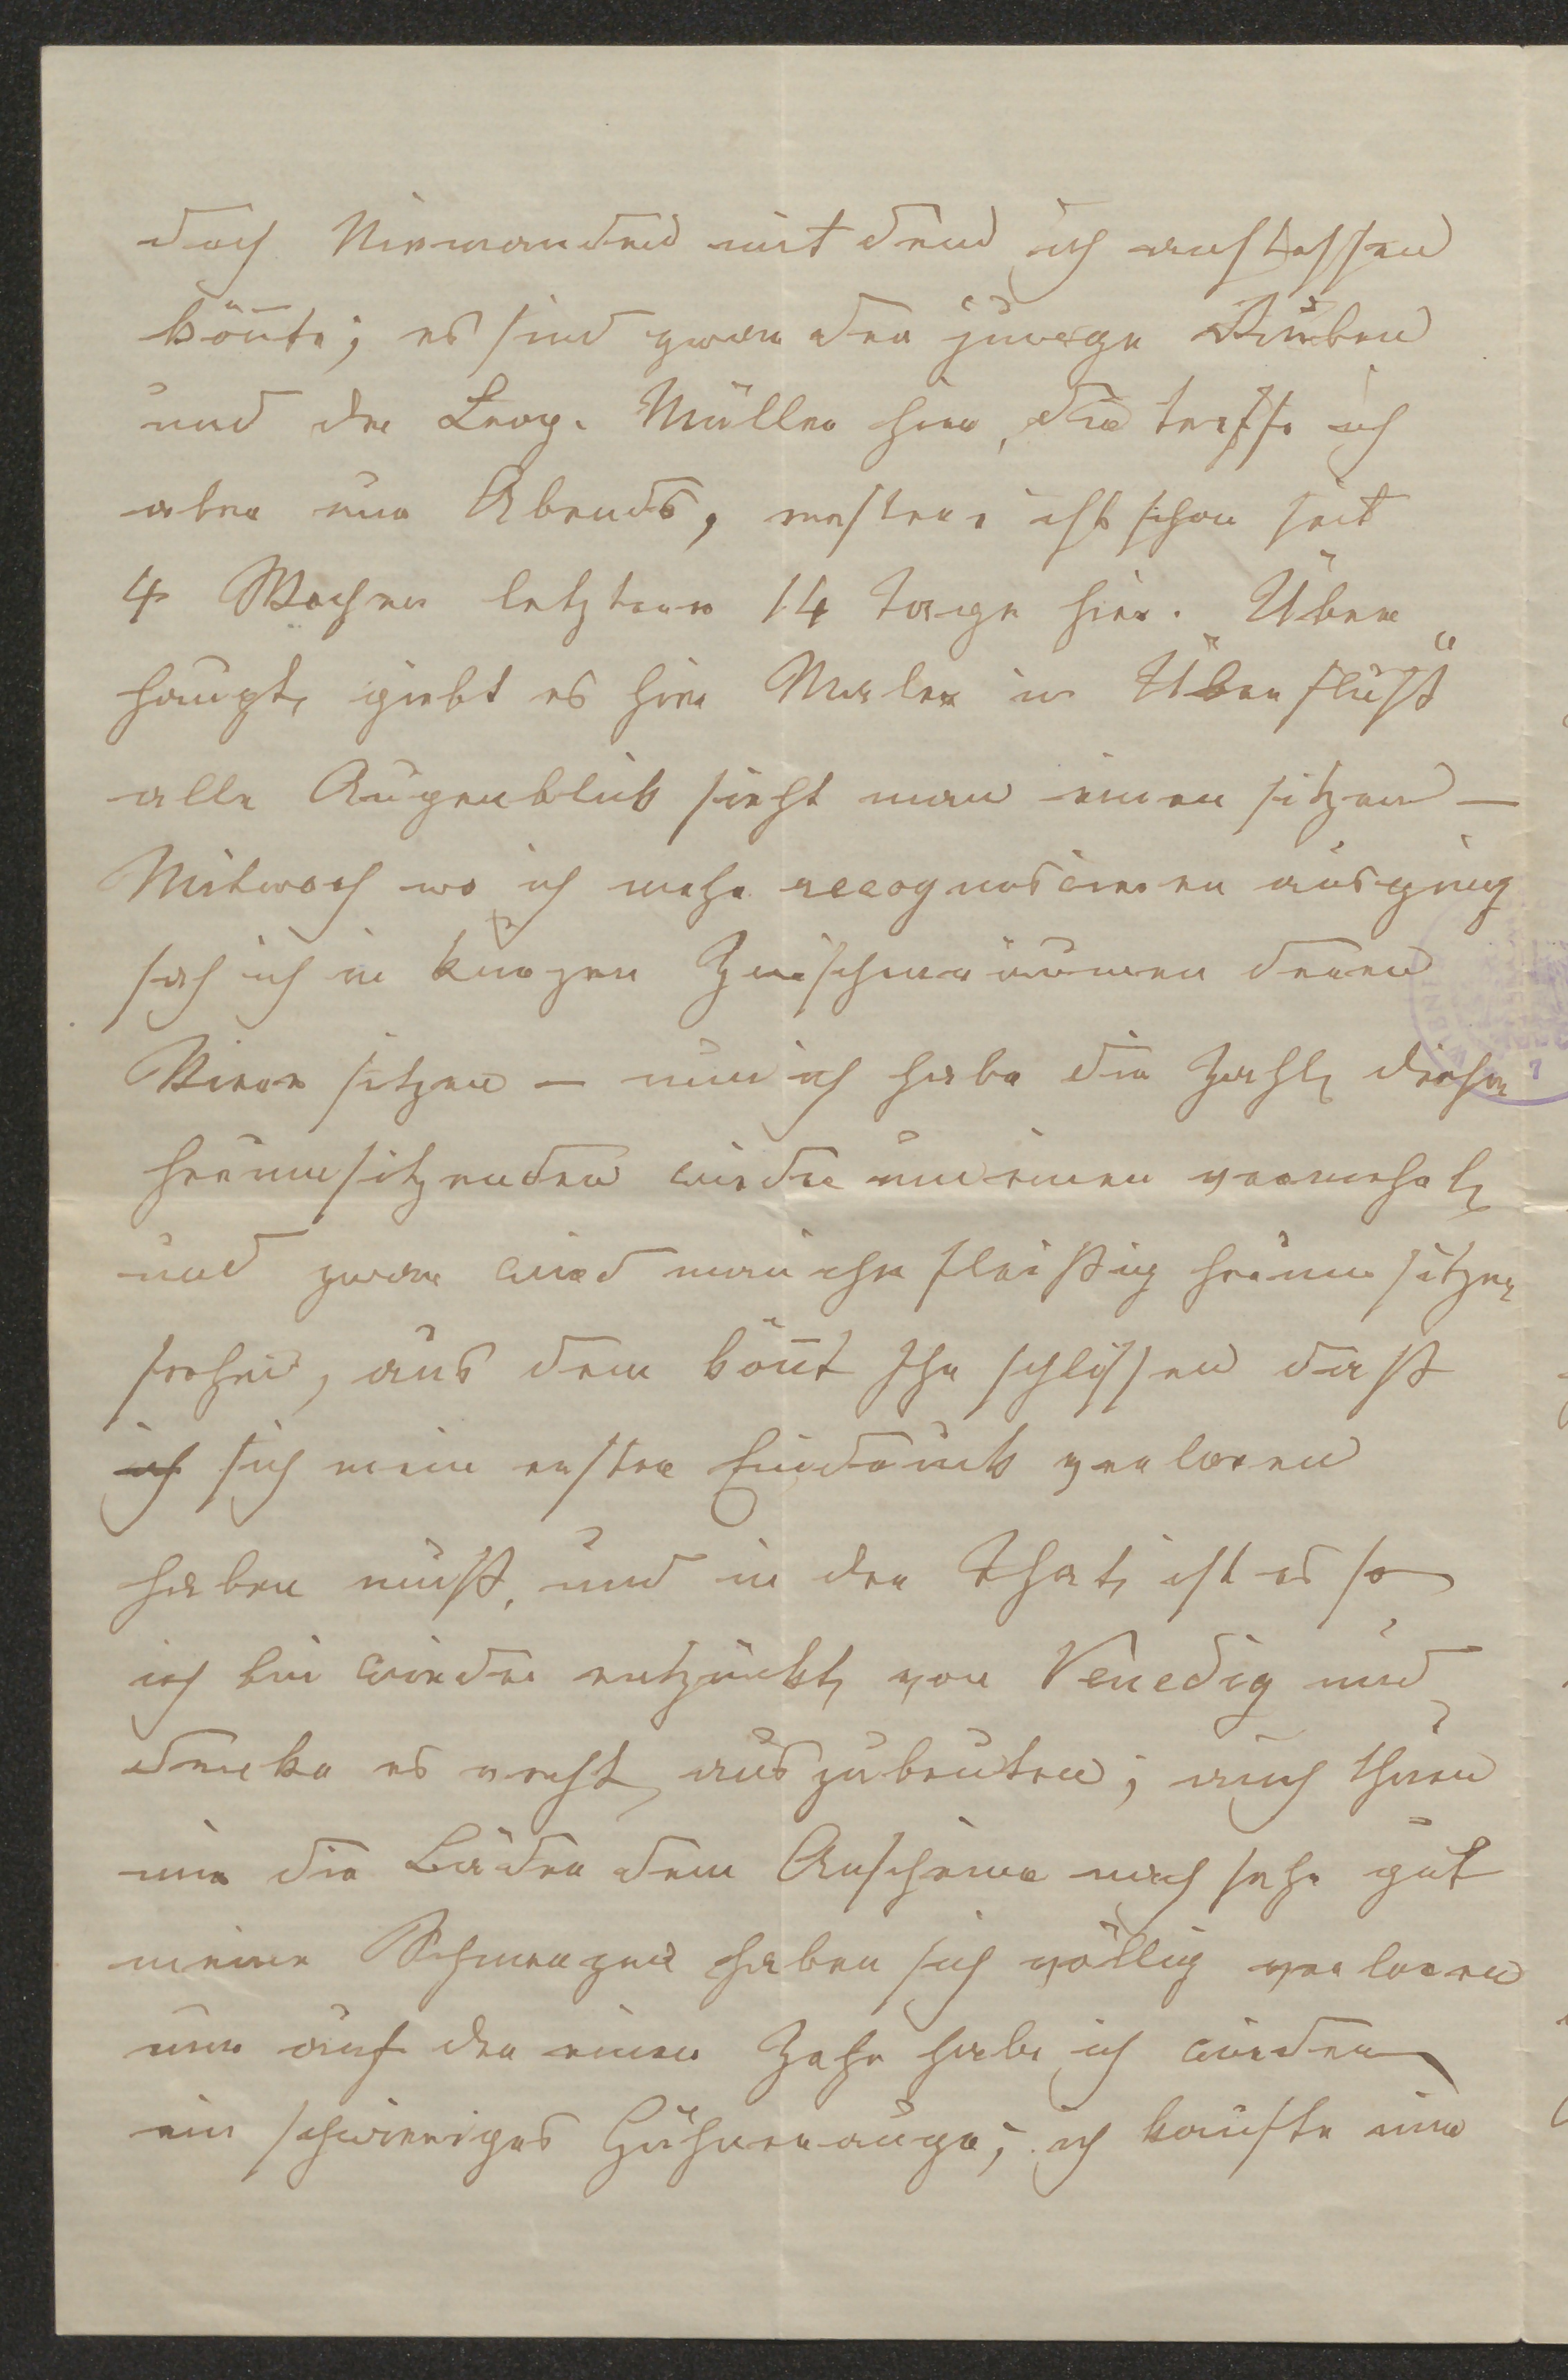 doch Niemanden mit dem ich
kön̄te; es sind zwar der junge Ruben
und der Leop. Müller hier, die treffe ich
aber nur Abends, erstere ist schon seit
4 Wochen letzterer 14 Tage hier. Über„
haupt giebt es hier Maler in Überfluß
alle Augenblick sieht man einen sitzen —
Mitwoch wo ich mehr recognosciren ausging
sah ich in kurzen Zwischenräumen deren
Viere sitzen — nun ich habe die Zahl dieser
herumsitzenden wieder um einen vermehrt
und zwar wird man ihn fleißig herum sitzen
sehen, aus dem kön̄t Ihr schlissen daß
ich sich mein erster Eindruck verloren
haben muß, und in der That ist es so
ich bin wieder entzückt von Venedig und
denke es recht auszubeuten; auch thuen
mir die Bäder dem Anscheine nach sehr gut
meine Schmerzen haben sich völlig verloren
nur auf der einen Zehe habe ich wieder
ein schwieriges Hühnerauge; ich kaufte mir